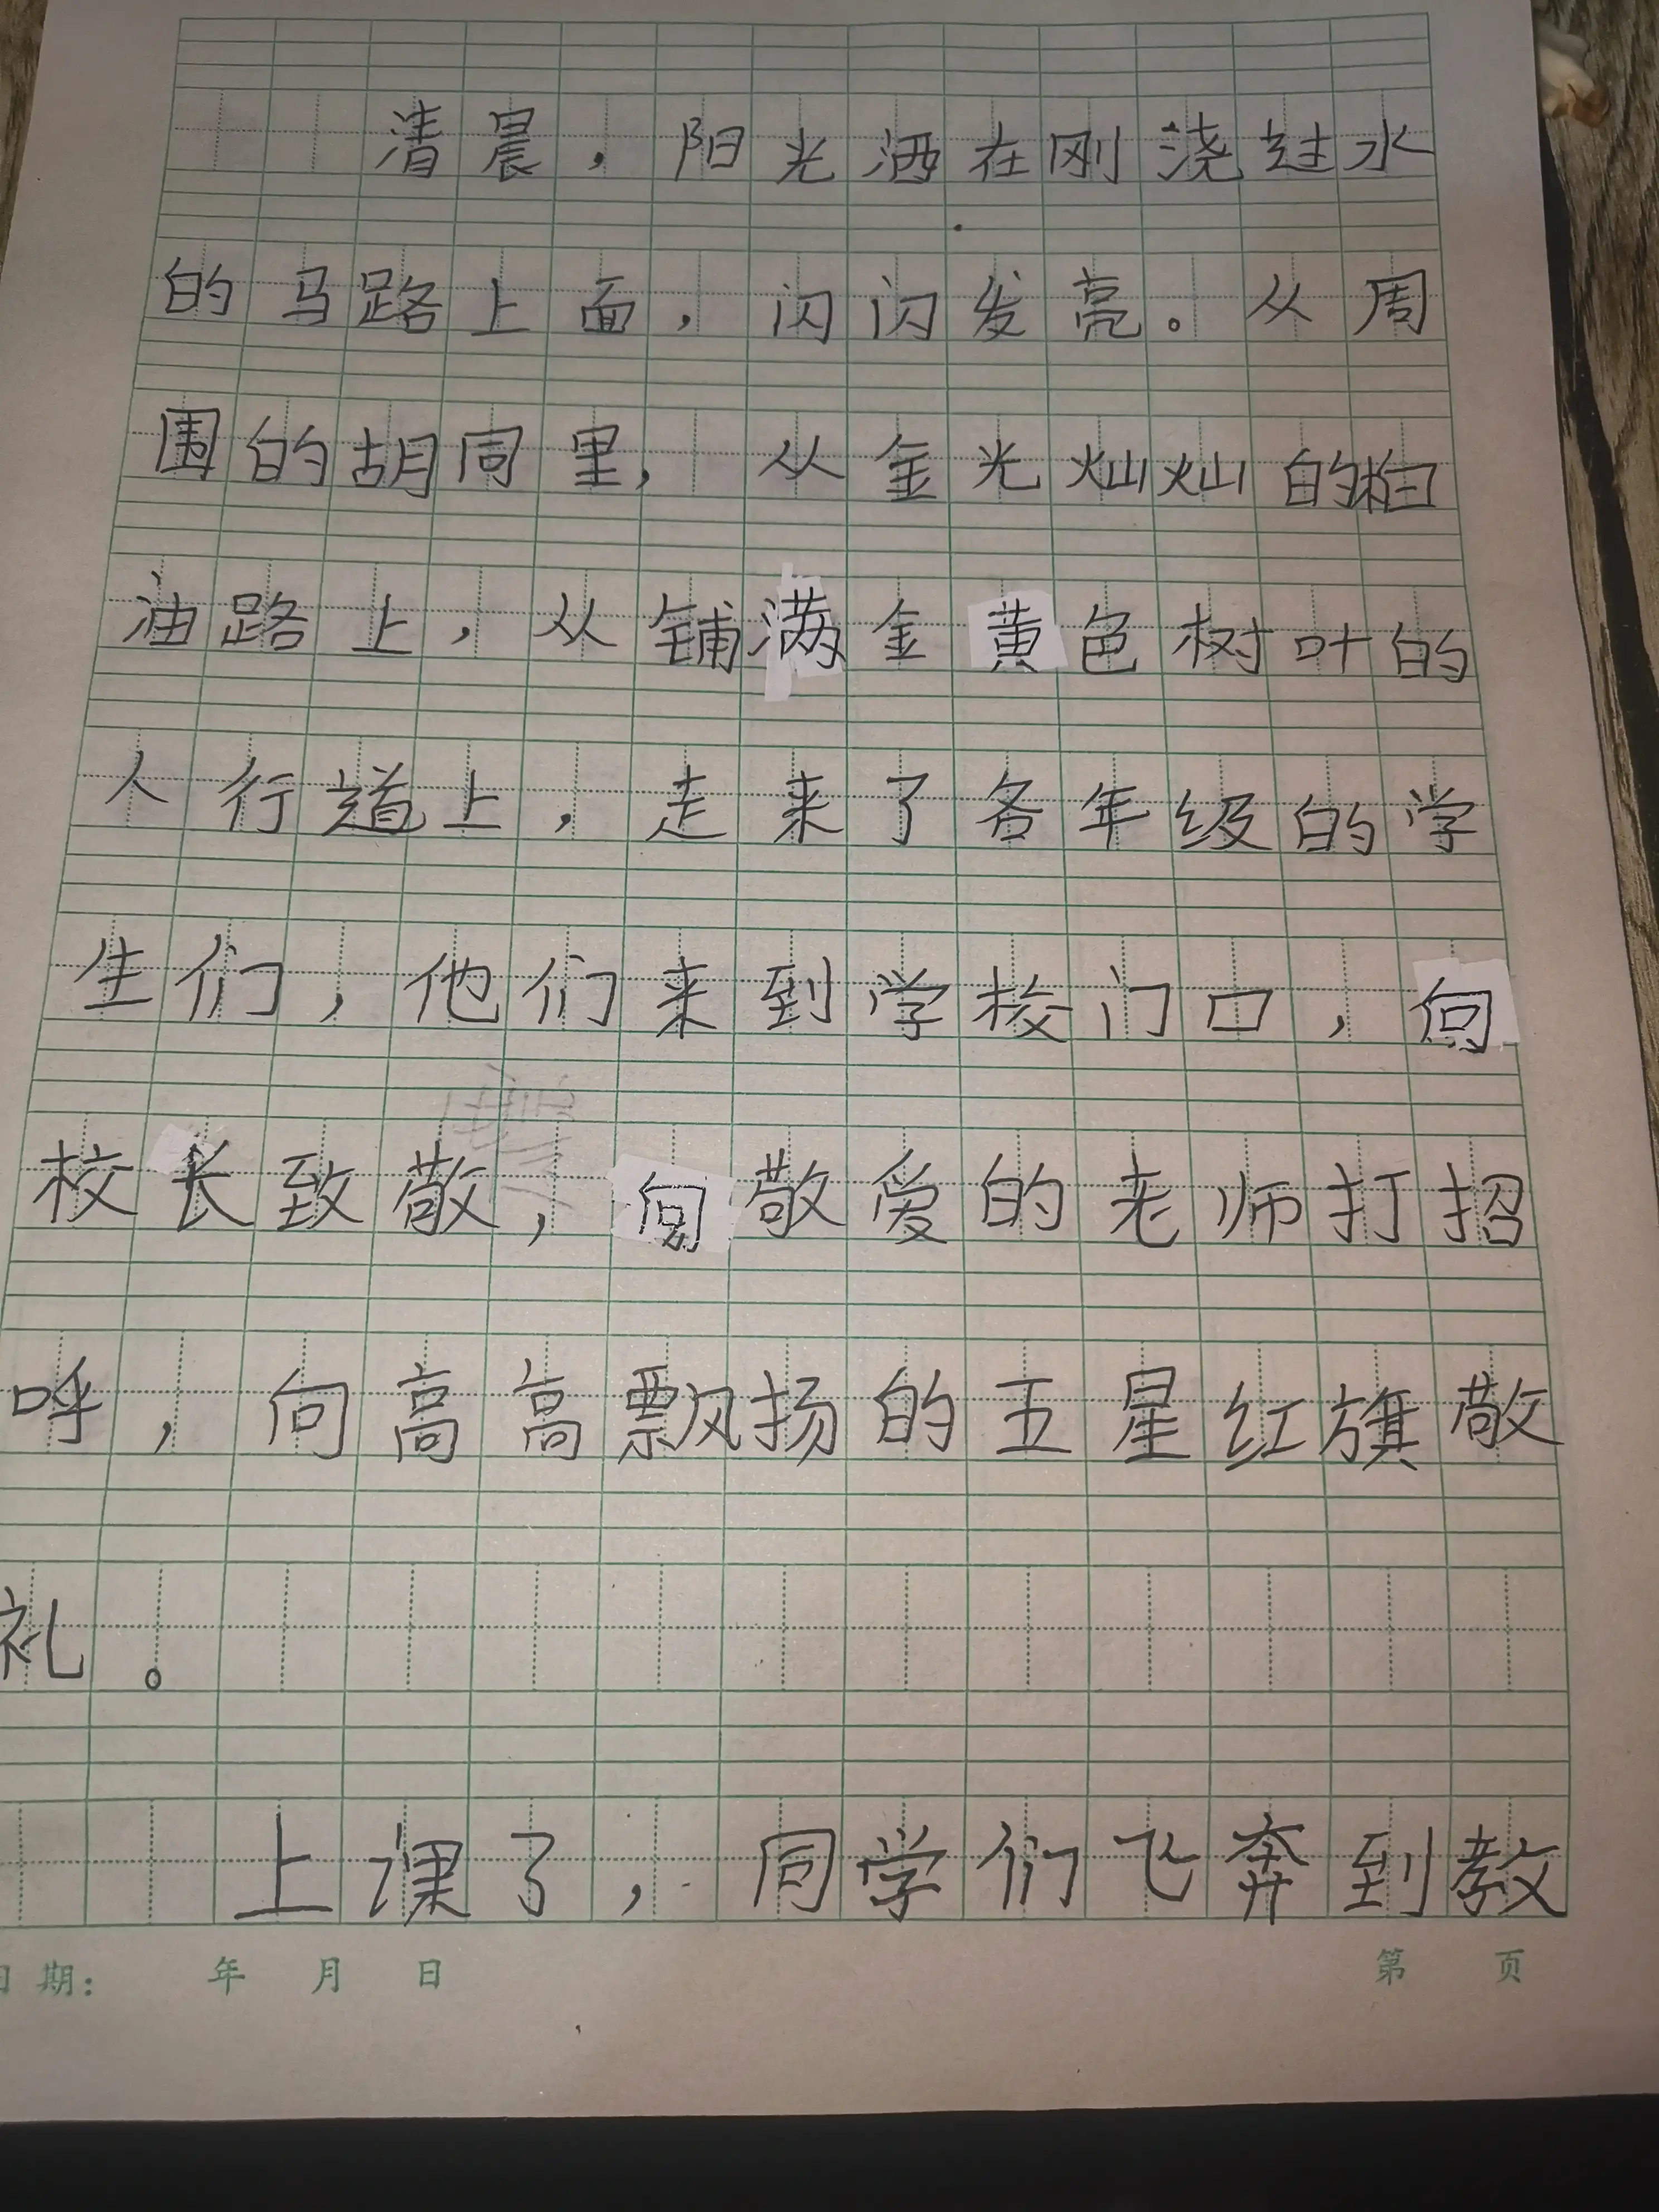 清晨，阳光洒在刚浇过水
的马路上面，闪闪发亮。从周
围的胡同里，从金光灿灿的柏
油路上，从铺满金黄色树叶的
人行道上，走来了各年级的学
生们，他们来到学校门口，向
校长致敬，向敬爱的老师打招
呼，向高高飘扬的五星红旗敬
礼。
上课了，同学们飞奔到教
日期： 年 月 日 第 页